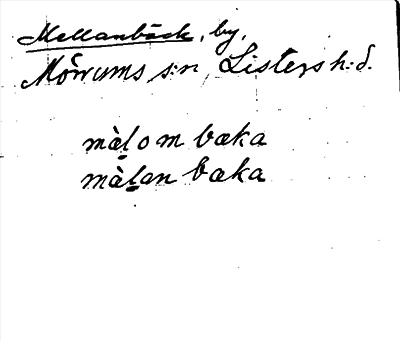 Mellanbäck, by,
Mörrums s:n, Listers h:d.
màl̯om bæka
màl̯an bæka